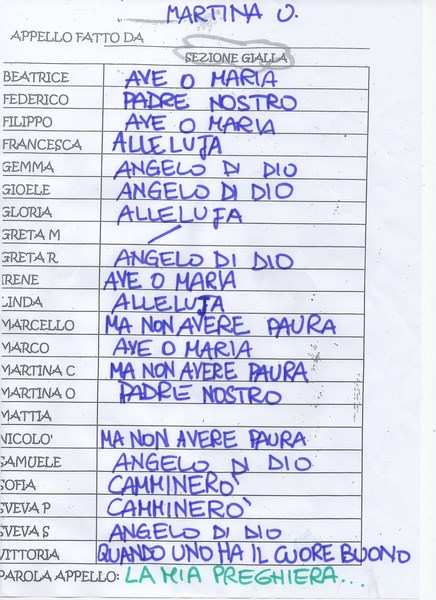 MARTINA O.
APPELLO FATTO DA
SEZIONE GIALLA
BEATRICE AVE O MARIA
FEDERICO PADRE NOSTRO
FILIPPO AVE O MARIA
FRANCESCA ALLELUJA
GEMMA ANGELO DI DIO
GIOELE ANGELO DI DIO
GLORIA ALLELUJA
GRETA M
GRETA R ANGELO DI DIO
IRENE AVE O MARIA
LINDA ALLELUJA
MARCELLO MA NON AVERE PAURA
MARCO AVE O MARIA
MARTINA C MA NON AVERE PAURA
MARTINA O PADRE NOSTRO
MATTIA
NICOLO' MA NON AVERE PAURA
SAMUELE ANGELO DI DIO
SOFIA CAMMINERO'
SVEVA P CAMMINERO'
SVEVA S ANGELO DI DIO
VITTORIA QUANDO UNO HA IL CUORE BUONO
PAROLA APPELLO: LA MIA PREGHIERA...